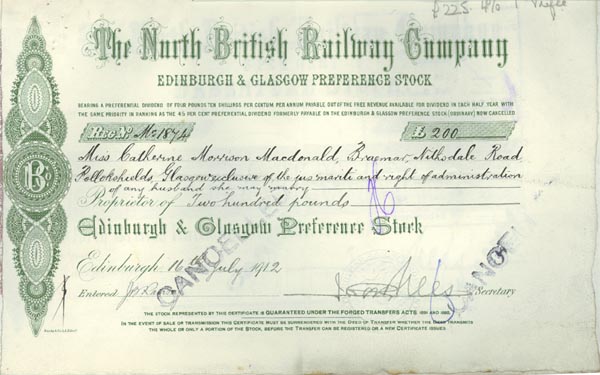 £225 4% 1
The North British Railway Company
EDINBURGH & GLASGOW PREFERENCE STOCK
BEARING A PREFERENTIAL DIVIDEND OF FOUR POUNDS TEN SHILLINGS PER CENTUM PER ANNUM PAYABLE OUT OF THE FREE REVENUE AVAILABLE FOR DIVIDEND IN EACH HALF YEAR WITH
THE SAME PRIORITY IN RANKING AS THE 4½ PER CENT PREFERENTIAL DIVIDEND FORMERLY PAYABLE ON THE EDINBURGH & GLASGOW PREFERENCE STOCK (ORDINARY) NOW CANCELLED
Reg. No. M/1874 £ 200
Miss Catherine Morrison Macdonald, Braemar, Nithsdale Road
Pollokshields Glasgow exclusive of the jus mariti and right of administration
of any husband she may marry
Proprietor of Two hundred pounds
Edinburgh & Glasgow Preference Stock
CANCELLED
CANCEL
Edinburgh 16th July 1912
Entered Secretary
THE STOCK REPRESENTED BY THIS CERTIFICATE IS GUARANTEED UNDER THE FORGED TRANSFERS ACTS 1891 AND 1892.
IN THE EVENT OF SALE OR TRANSMISSION THIS CERTIFICATE MUST BE SURRENDERED WITH THE DEED OF TRANSFER WHETHER THE DEED TRANSMITS
THE WHOLE OR ONLY A PORTION OF THE STOCK, BEFORE THE TRANSFER CAN BE REGISTERED OR A NEW CERTIFICATE ISSUED